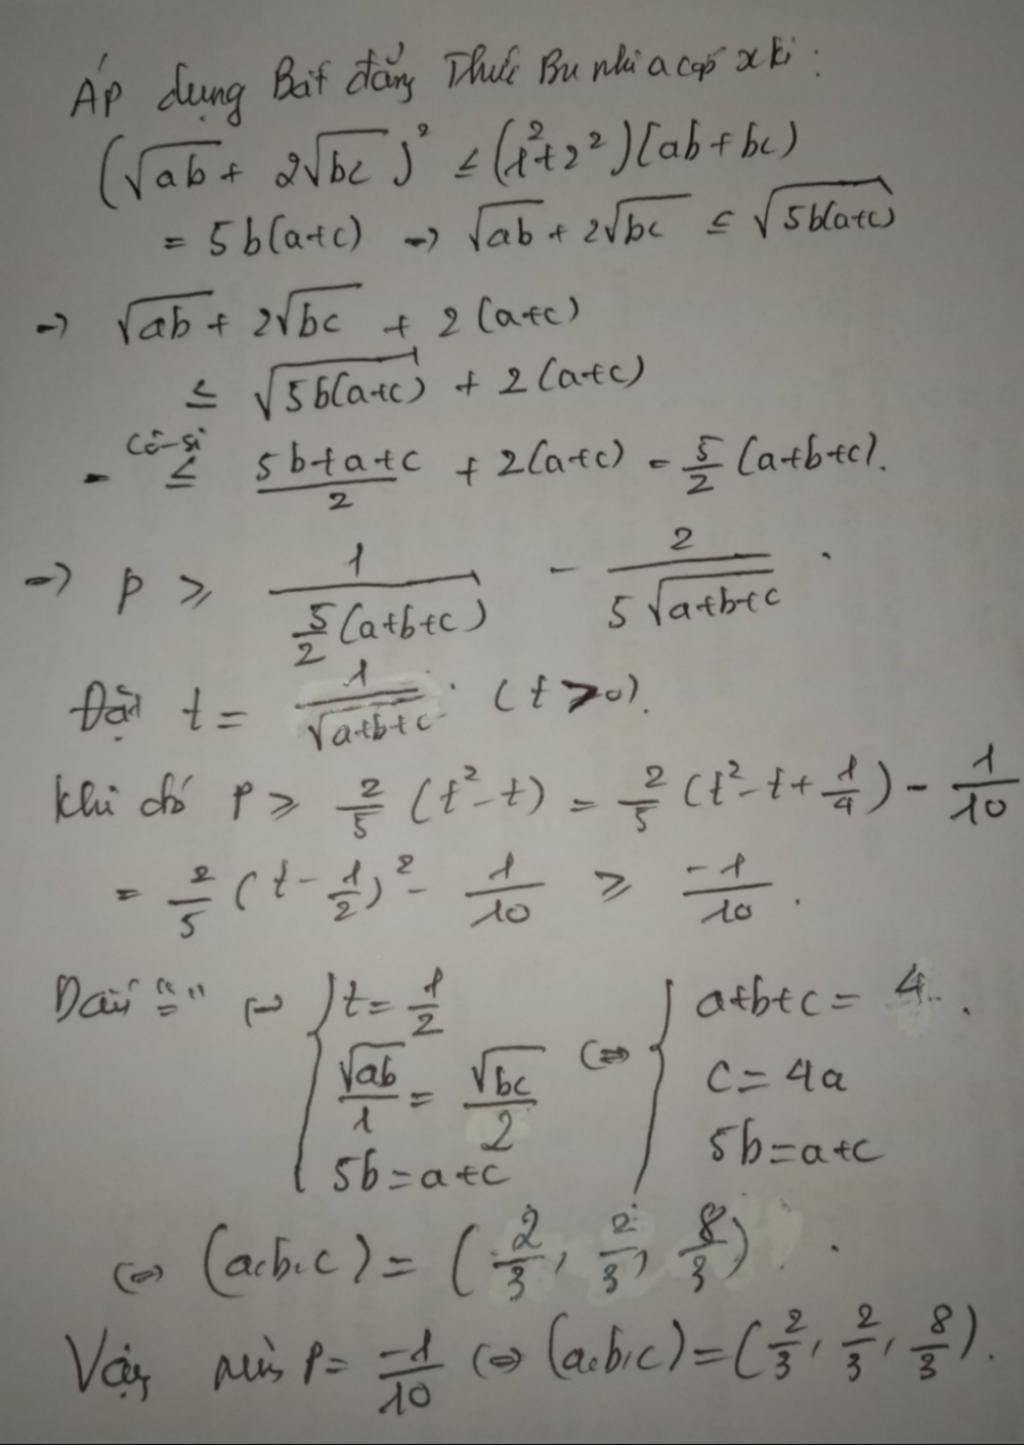 Áp dụng Bất đẳng Thức Bu nhi a cop xki :
(√ab + 2√bc)² ≤ (1²+2²)(ab+bc)
= 5b(a+c) → √ab + 2√bc ≤ √5b(a+c)
→ √ab + 2√bc + 2(a+c)
≤ √5b(a+c) + 2(a+c)
Cô-si
- ≤ (5b+a+c)/2 + 2(a+c) = 5/2 (a+b+c).
→ P ≥ 1/(5/2 (a+b+c)) - 2/(5√a+b+c) .
Đặt t = 1/√a+b+c . (t > 0).
Khi đó P ≥ 2/5 (t²-t) = 2/5 (t²-t+1/4) - 1/10
= 2/5 (t-1/2)² - 1/10 ≥ -1/10 .
Dấu "=" ⇔ { t = 1/2 ⇔ { a+b+c = 4 .
√ab/1 = √bc/2 c = 4a
5b = a+c 5b = a+c
⇔ (a,b,c) = (2/3, 2/3, 8/3) .
Vậy min P = -1/10 ⇔ (a,b,c) = (2/3, 2/3, 8/3).